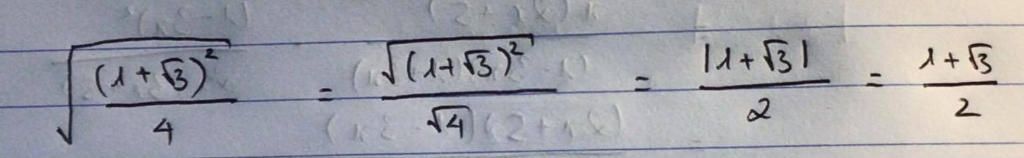 √((1+√3)²/4) = √((1+√3)²)/√4 = |1+√3|/2 = (1+√3)/2